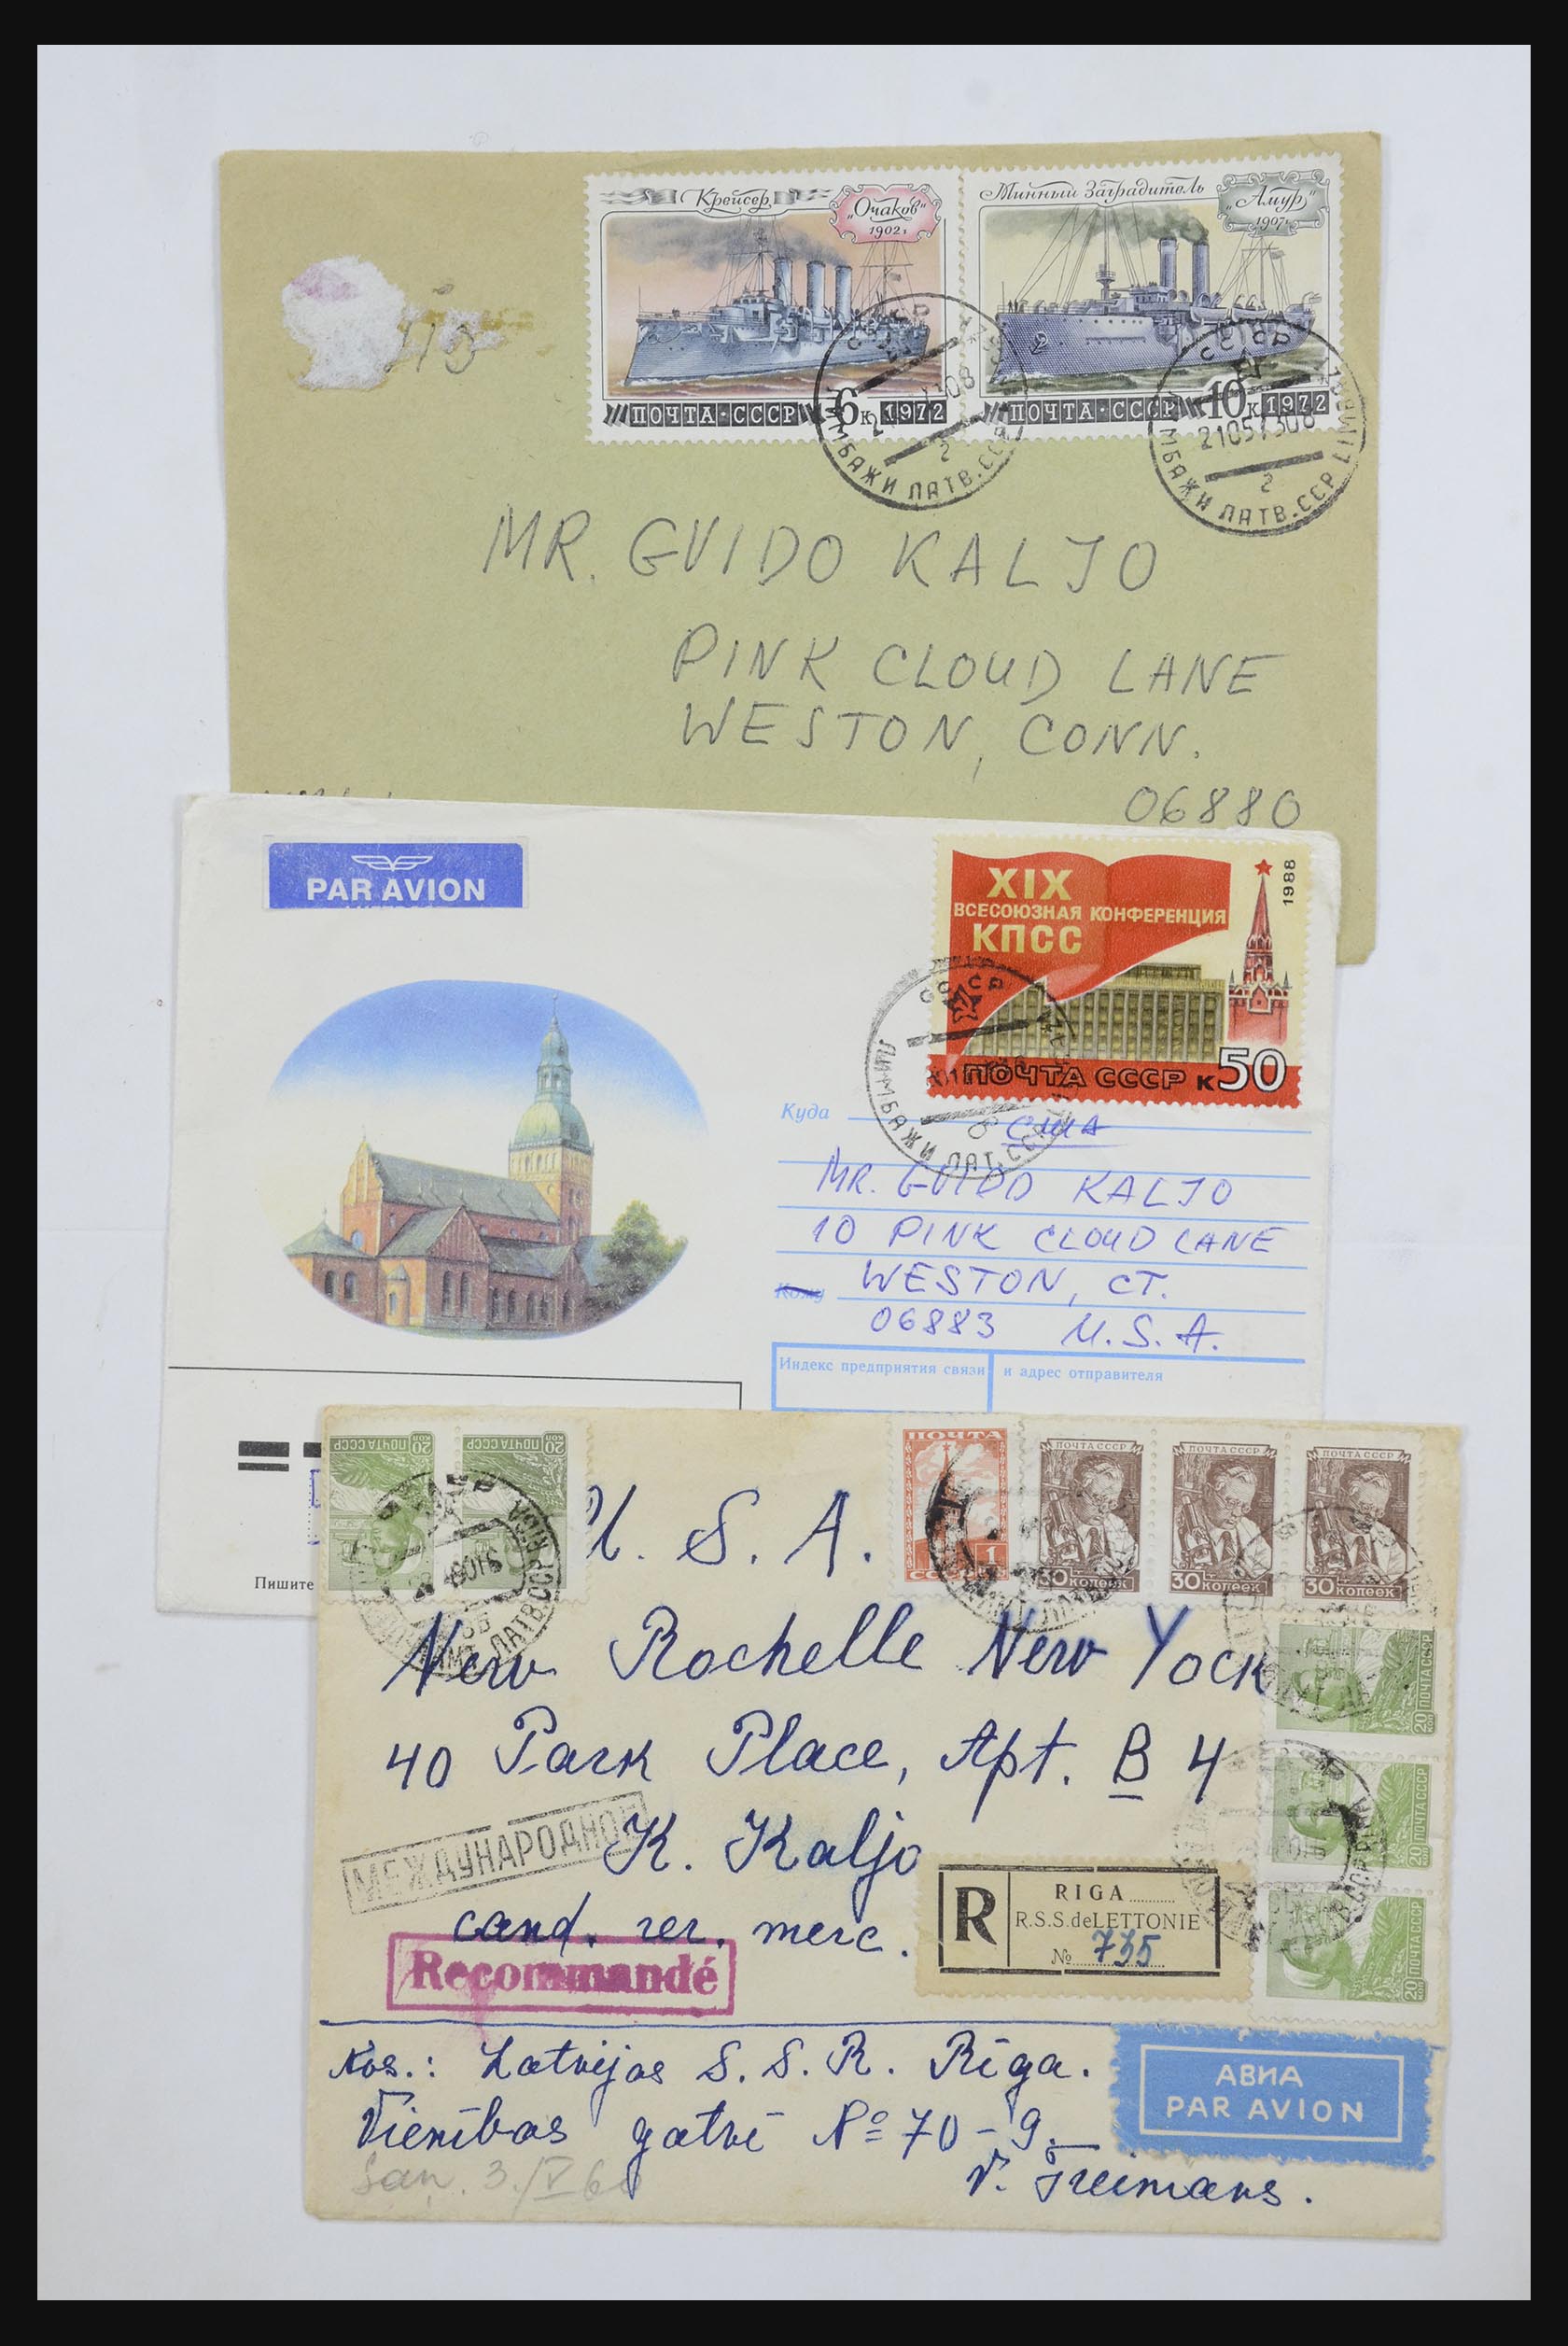 Крейсер
„Очаков“
1902 г
ПОЧТА·СССР 6к 1972
Минный Заградитель
„Амур“
1907 г
ПОЧТА·СССР 10к 1972
СССР
ЛАТВ.ССР
2
СССР LIMBAŽI
2105730
ЛИМБАЖИ ЛАТВ.ССР
2
MR. GUIDO KALJO
PINK CLOUD LANE
WESTON, CONN.
06880
PAR AVION
XIX
ВСЕСОЮЗНАЯ КОНФЕРЕНЦИЯ
КПСС
1988
ПОЧТА СССР к50
СССР
ЛИМБАЖИ ЛАТ.ССР
6
Куда
США
MR. GUIDO KALJO
10 PINK CLOUD LANE
WESTON, CT.
Кому
06883 U.S.A.
Индекс предприятия связи и адрес отправителя
Пишите
20 КОП ПОЧТА СССР
20 КОП ПОЧТА СССР
ПОЧТА
1
СССР
ПОЧТА СССР
30 КОПЕЕК
ПОЧТА СССР
30 КОПЕЕК
ПОЧТА СССР
30 КОПЕЕК
20 КОП ПОЧТА СССР
20 КОП ПОЧТА СССР
20 КОП ПОЧТА СССР
U. S. A.
New Rochelle New York
40 Park Place, Apt. B 4
K. Kaljo
МЕЖДУНАРОДНОЕ
cand. rer. merc.
Recommandé
R
RIGA
R.S.S. de LETTONIE
№ 735
Nos.: Latvijas S. S. R. Rīga.
Vienības gatvē № 70 – 9.
V. Treimans.
Saņ. 3./V 6
АВИА
PAR AVION